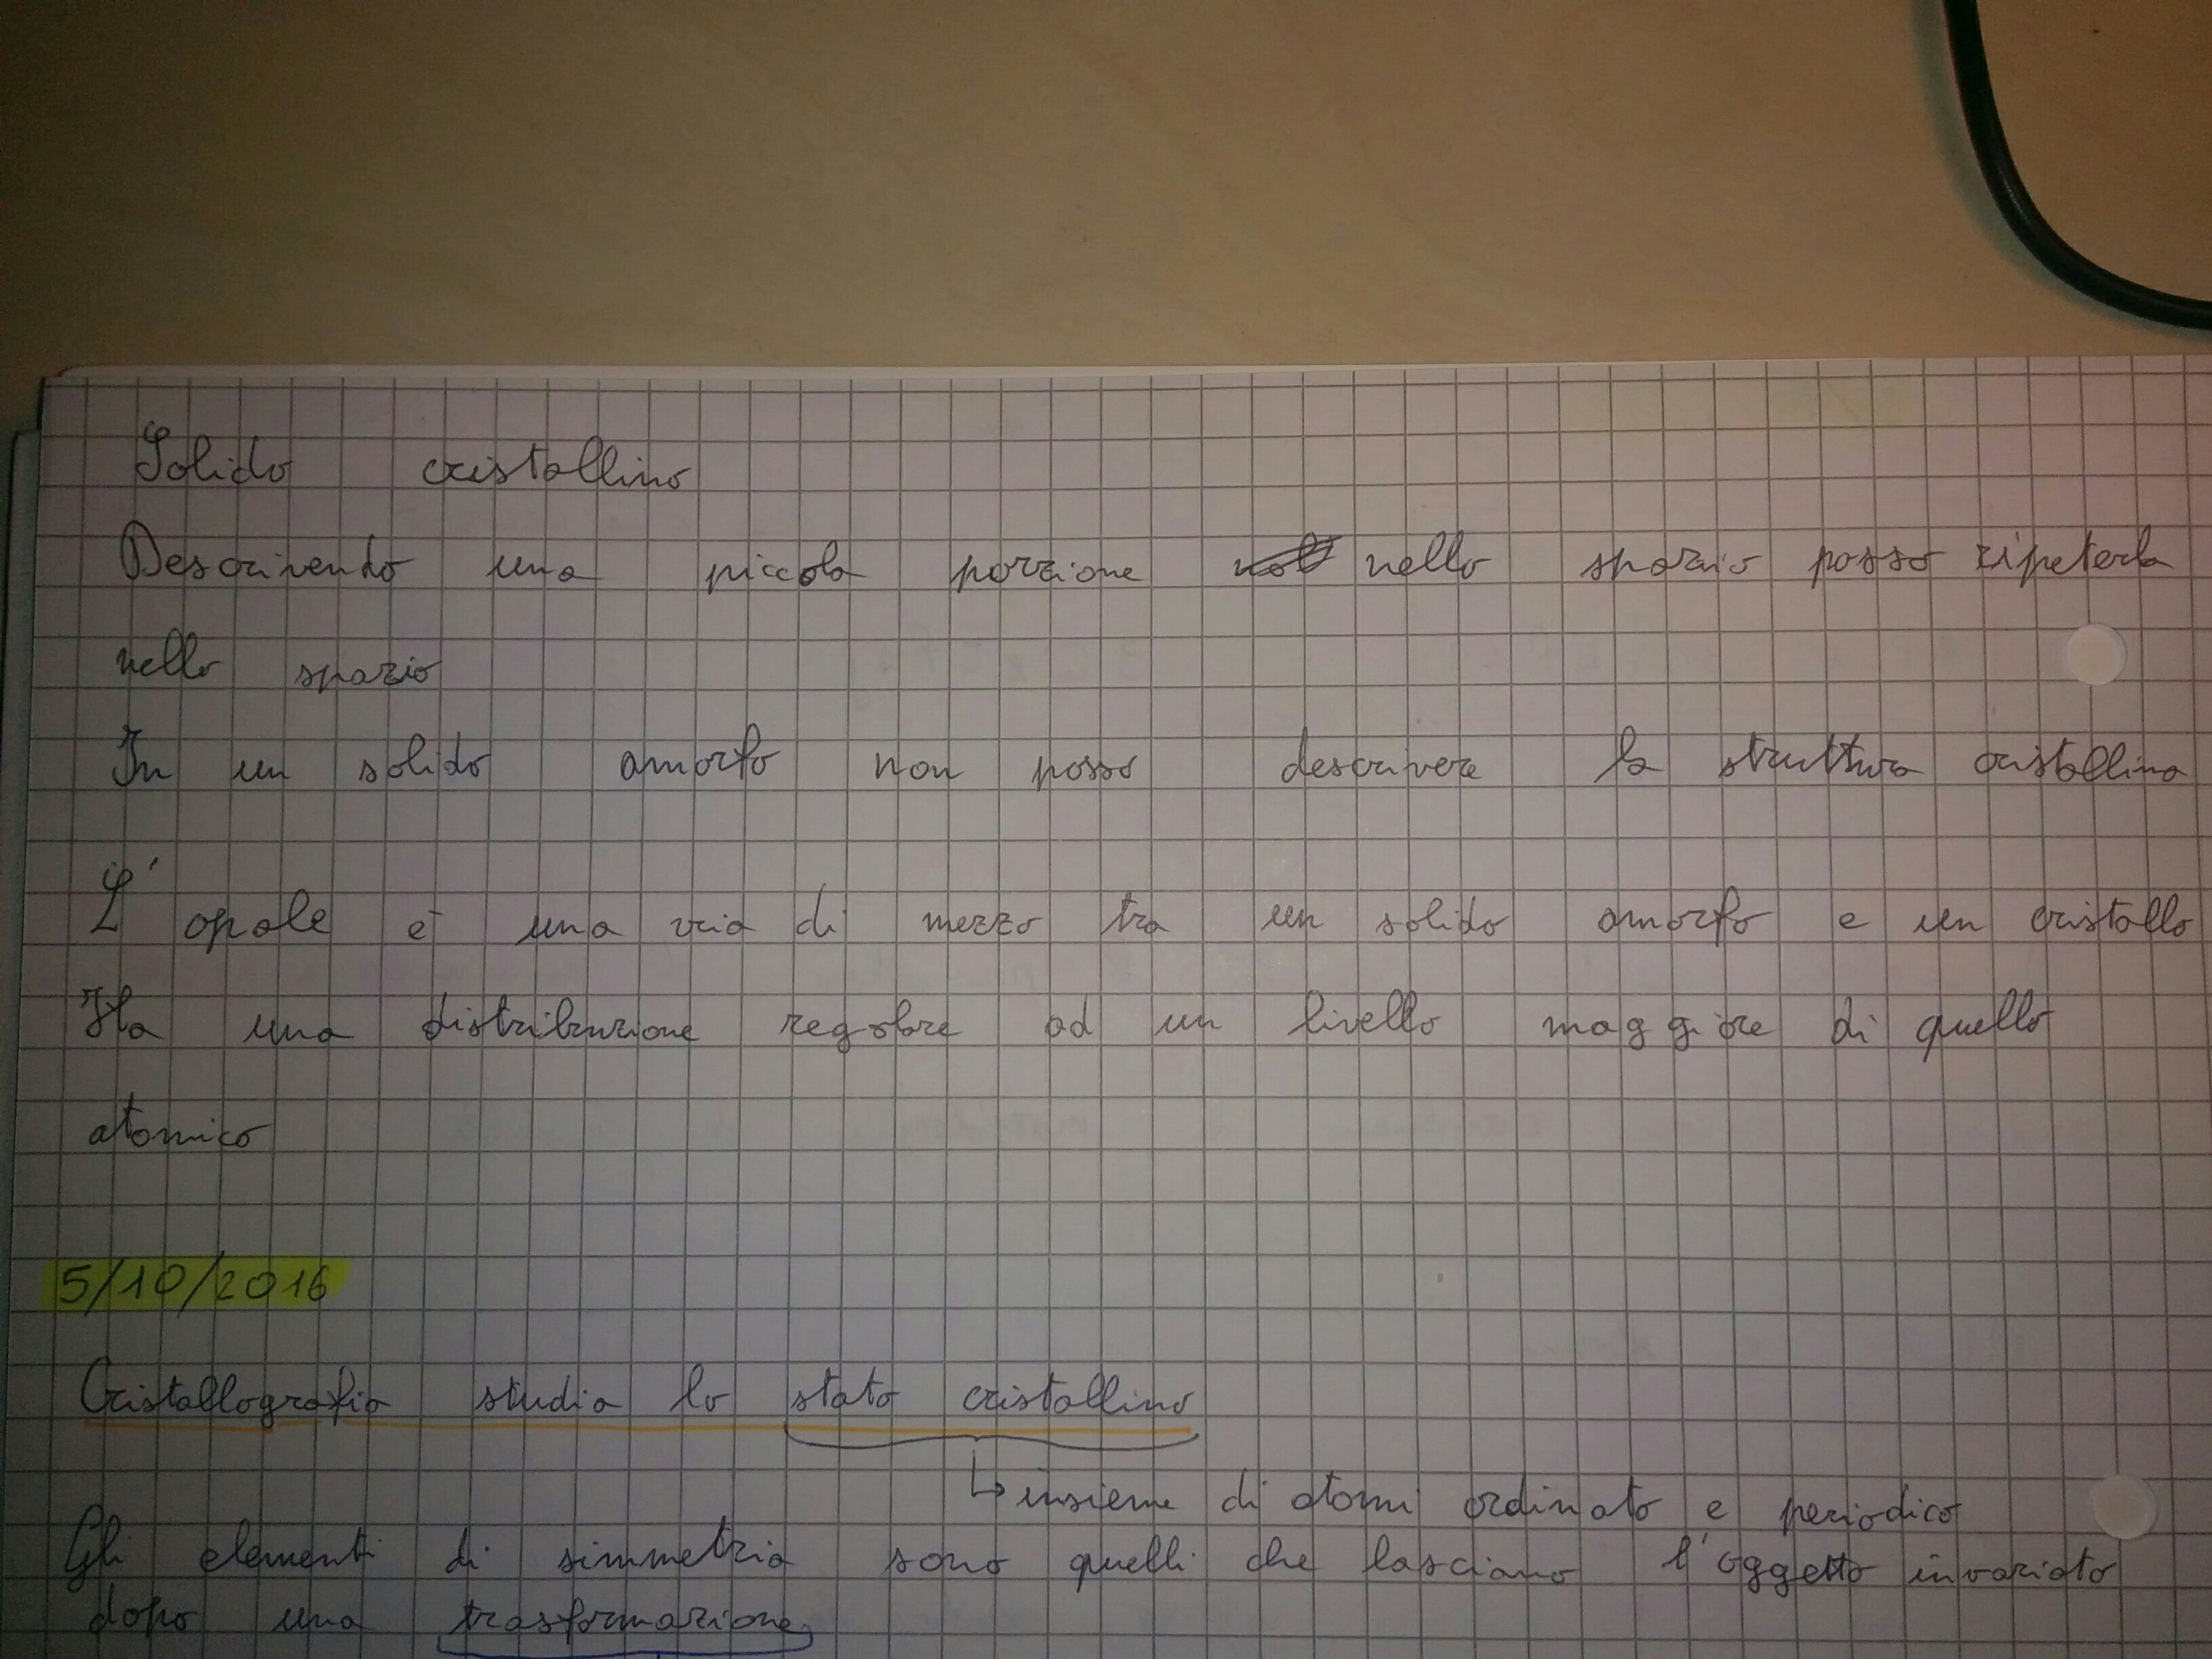 Solido cristallino
Descrivendo una piccola porzione nello spazio posso ripeterla
nello spazio
In un solido amorfo non posso descrivere la struttura cristallina
L' opale è una via di mezzo tra un solido amorfo e un cristallo
Ha una distribuzione regolare ad un livello maggiore di quello
atomico
5/10/2016
Cristallografia studia lo stato cristallino
↳ insieme di atomi ordinato e periodico
Gli elementi di simmetria sono quelli che lasciano l'oggetto invariato
dopo una trasformazione